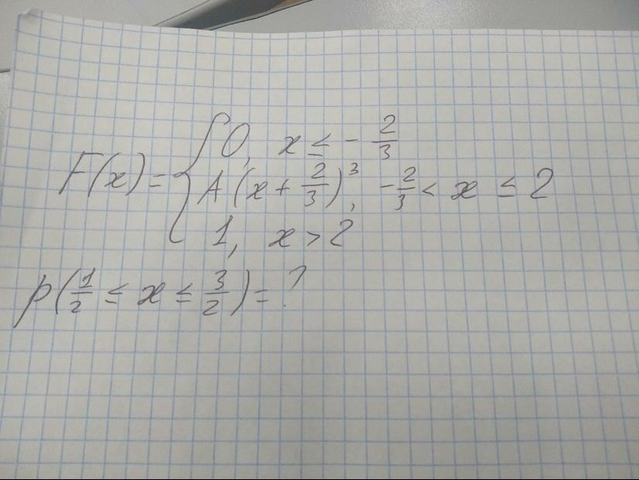 F(x) = { 0, x ≤ - 2/3
A(x + 2/3)³, -2/3 < x ≤ 2
1, x > 2
p(1/2 ≤ x ≤ 3/2) = ?